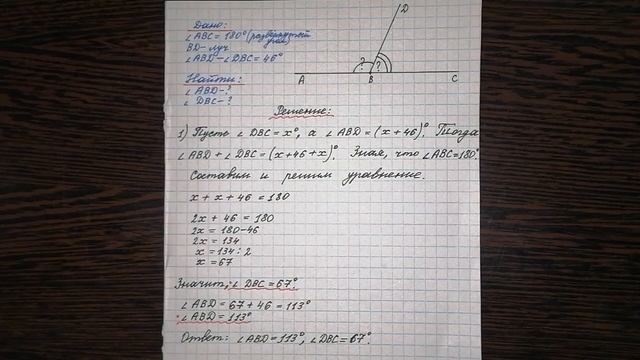 Дано:
∠ABC = 180° (развёрнутый
угол)
BD - луч
∠ABD - ∠DBC = 46°
Найти:
∠ABD - ?
∠DBC - ?
D
? ?
A B C
Решение:
1) Пусть ∠DBC = x°, а ∠ABD = (x + 46)°. Тогда
∠ABD + ∠DBC = (x + 46 + x)°. Зная, что ∠ABC = 180°.
Составим и решим уравнение.
x + x + 46 = 180
2x + 46 = 180
2x = 180 - 46
2x = 134
x = 134 : 2
x = 67
Значит, ∠DBC = 67°.
∠ABD = 67 + 46 = 113°
∠ABD = 113°
Ответ: ∠ABD = 113°, ∠DBC = 67°.